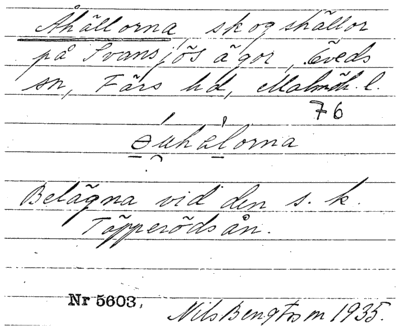 Åhällorna, skogshällor
på Svansjös ägor, Öveds
sn, Färs hd, Malmöh. l.
76
əuhəlorna
Belägna vid den s. k.
Täpperödsån.
Nr 5603. Nils Bengtsson 1935.